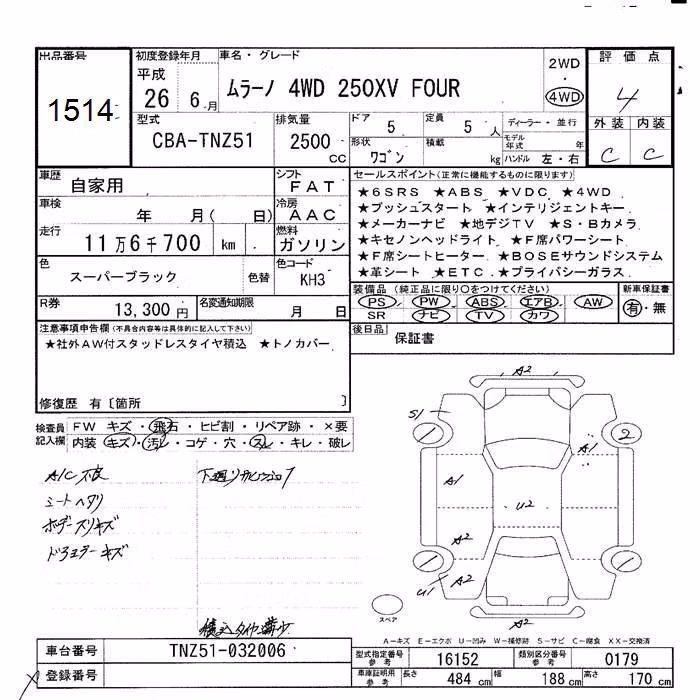 出品番号 初度登録年月 車名・グレード 2WD 評価点
平成 ・
26 6月 ムラーノ 4WD 250XV FOUR 4WD 4
1514
型式 排気量 ドア 定員 ディーラー・並行 外装 内装
5 5人 モデル年式 年
CBA-TNZ51 2500cc 形状 積載 C C
ワゴン kg ハンドル 左・右
車歴 シフト セールスポイント(正常に機能するものに限ります)
自家用 FAT ★6SRS ★ABS ★VDC ★4WD
車検 冷房 ★プッシュスタート ★インテリジェントキー
年 月( 日) AAC ★メーカーナビ ★地デジTV ★S・Bカメラ
走行 燃料 ★キセノンヘッドライト ★F席パワーシート
11万6千700 km ガソリン ★F席シートヒーター ★BOSEサウンドシステム
色 色替 色コード ★革シート ★ETC ★プライバシーガラス
スーパーブラック KH3
装備品(純正品に限り○をつけてください) 新車保証書
R券 名変通知期限 PS PW ABS エアB AW 有・無
13,300円 月 日 SR ナビ TV カワ
注意事項申告欄(不具合内容等は具体的に記入して下さい) 後日品 保証書
★社外AW付スタッドレスタイヤ積込 ★トノカバー
修復歴 有〔箇所 〕
検査員 FW キズ・飛石・ヒビ割・リペア跡・×要
記入欄 内装 キズ・汚レ・コゲ・穴・スレ・キレ・破レ
A2
S1
2
A1
A1
A/C不良
シートヘタリ
U2
A2
ドラムエターキズ
A2
U1
A2
スペア
積込タイヤ溝少
A-キズ E-エクボ U-凹み W-補修跡 S-サビ C-腐食 XX-交換済
車台番号 TNZ51-032006 型式指定番号 参考 16152 類別区分番号 参考 0179
登録番号 車庫証明用 参考 長さ 484 cm 幅 188 cm 高さ 170 cm